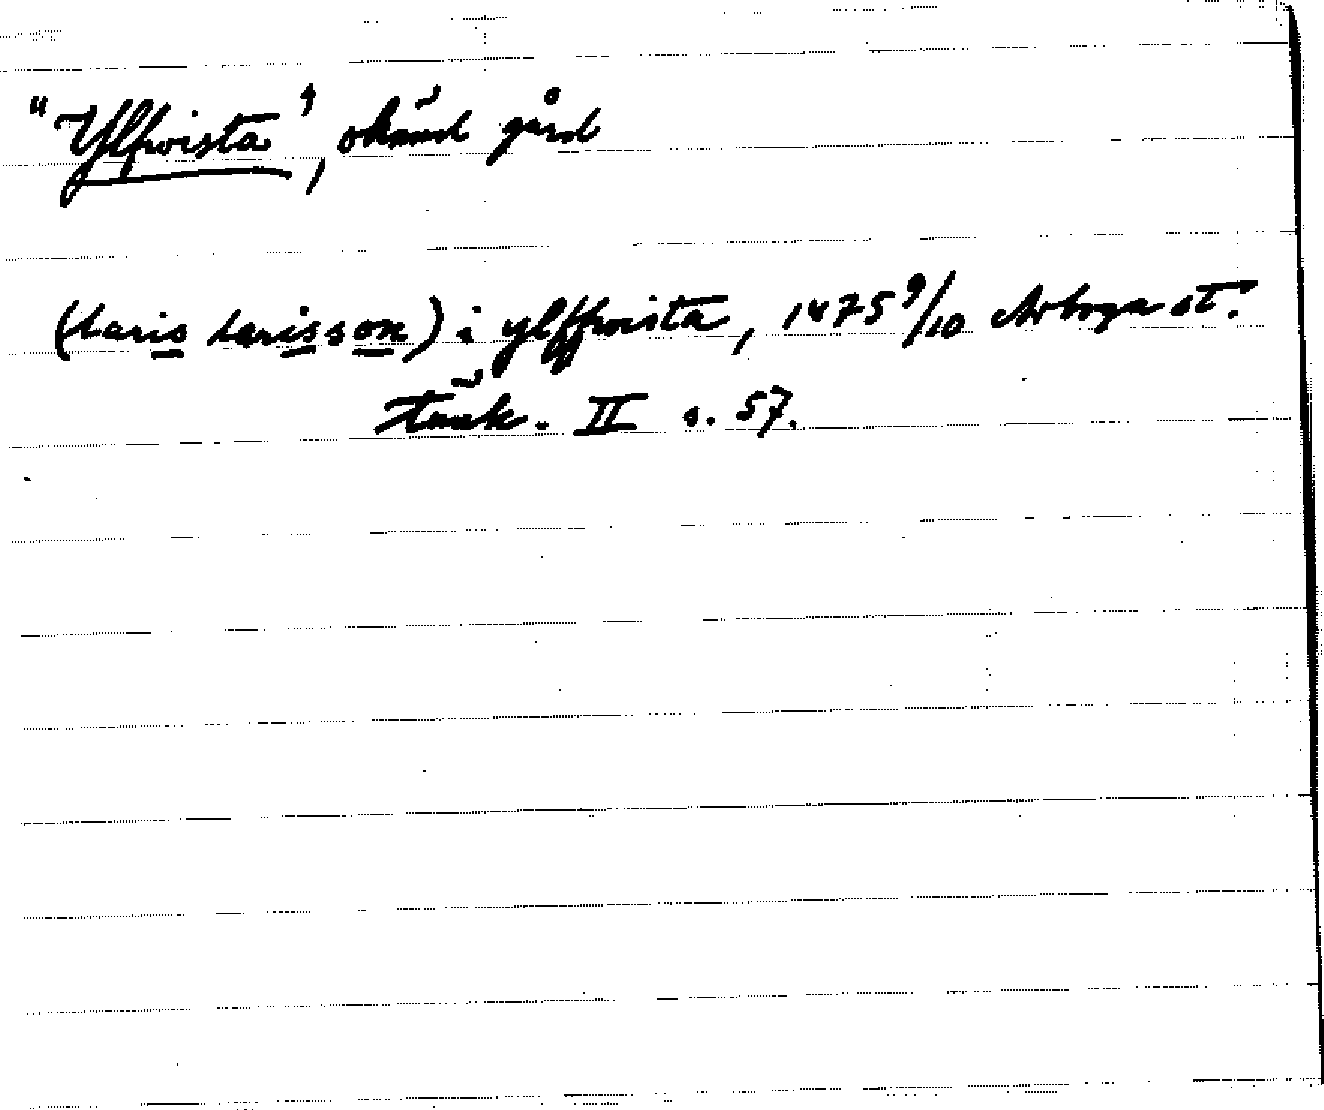 "Ylfwista", okänd gård
(laris larisson) i ylffwista, 1475 9/10 Arboga st:
tänk. II s. 57.